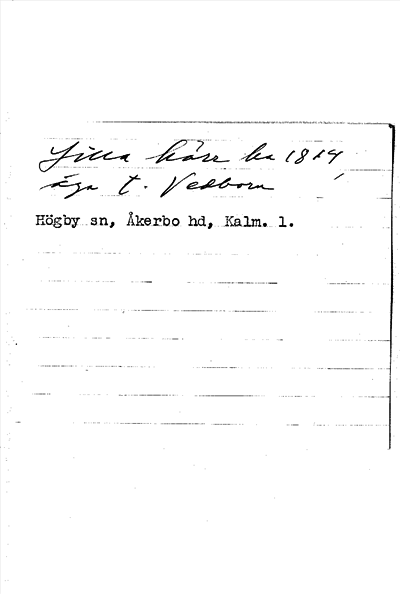 Lilla hörr ha 1814,
äga t. Vedborm
Högby sn, Åkerbo hd, Kalm. l.